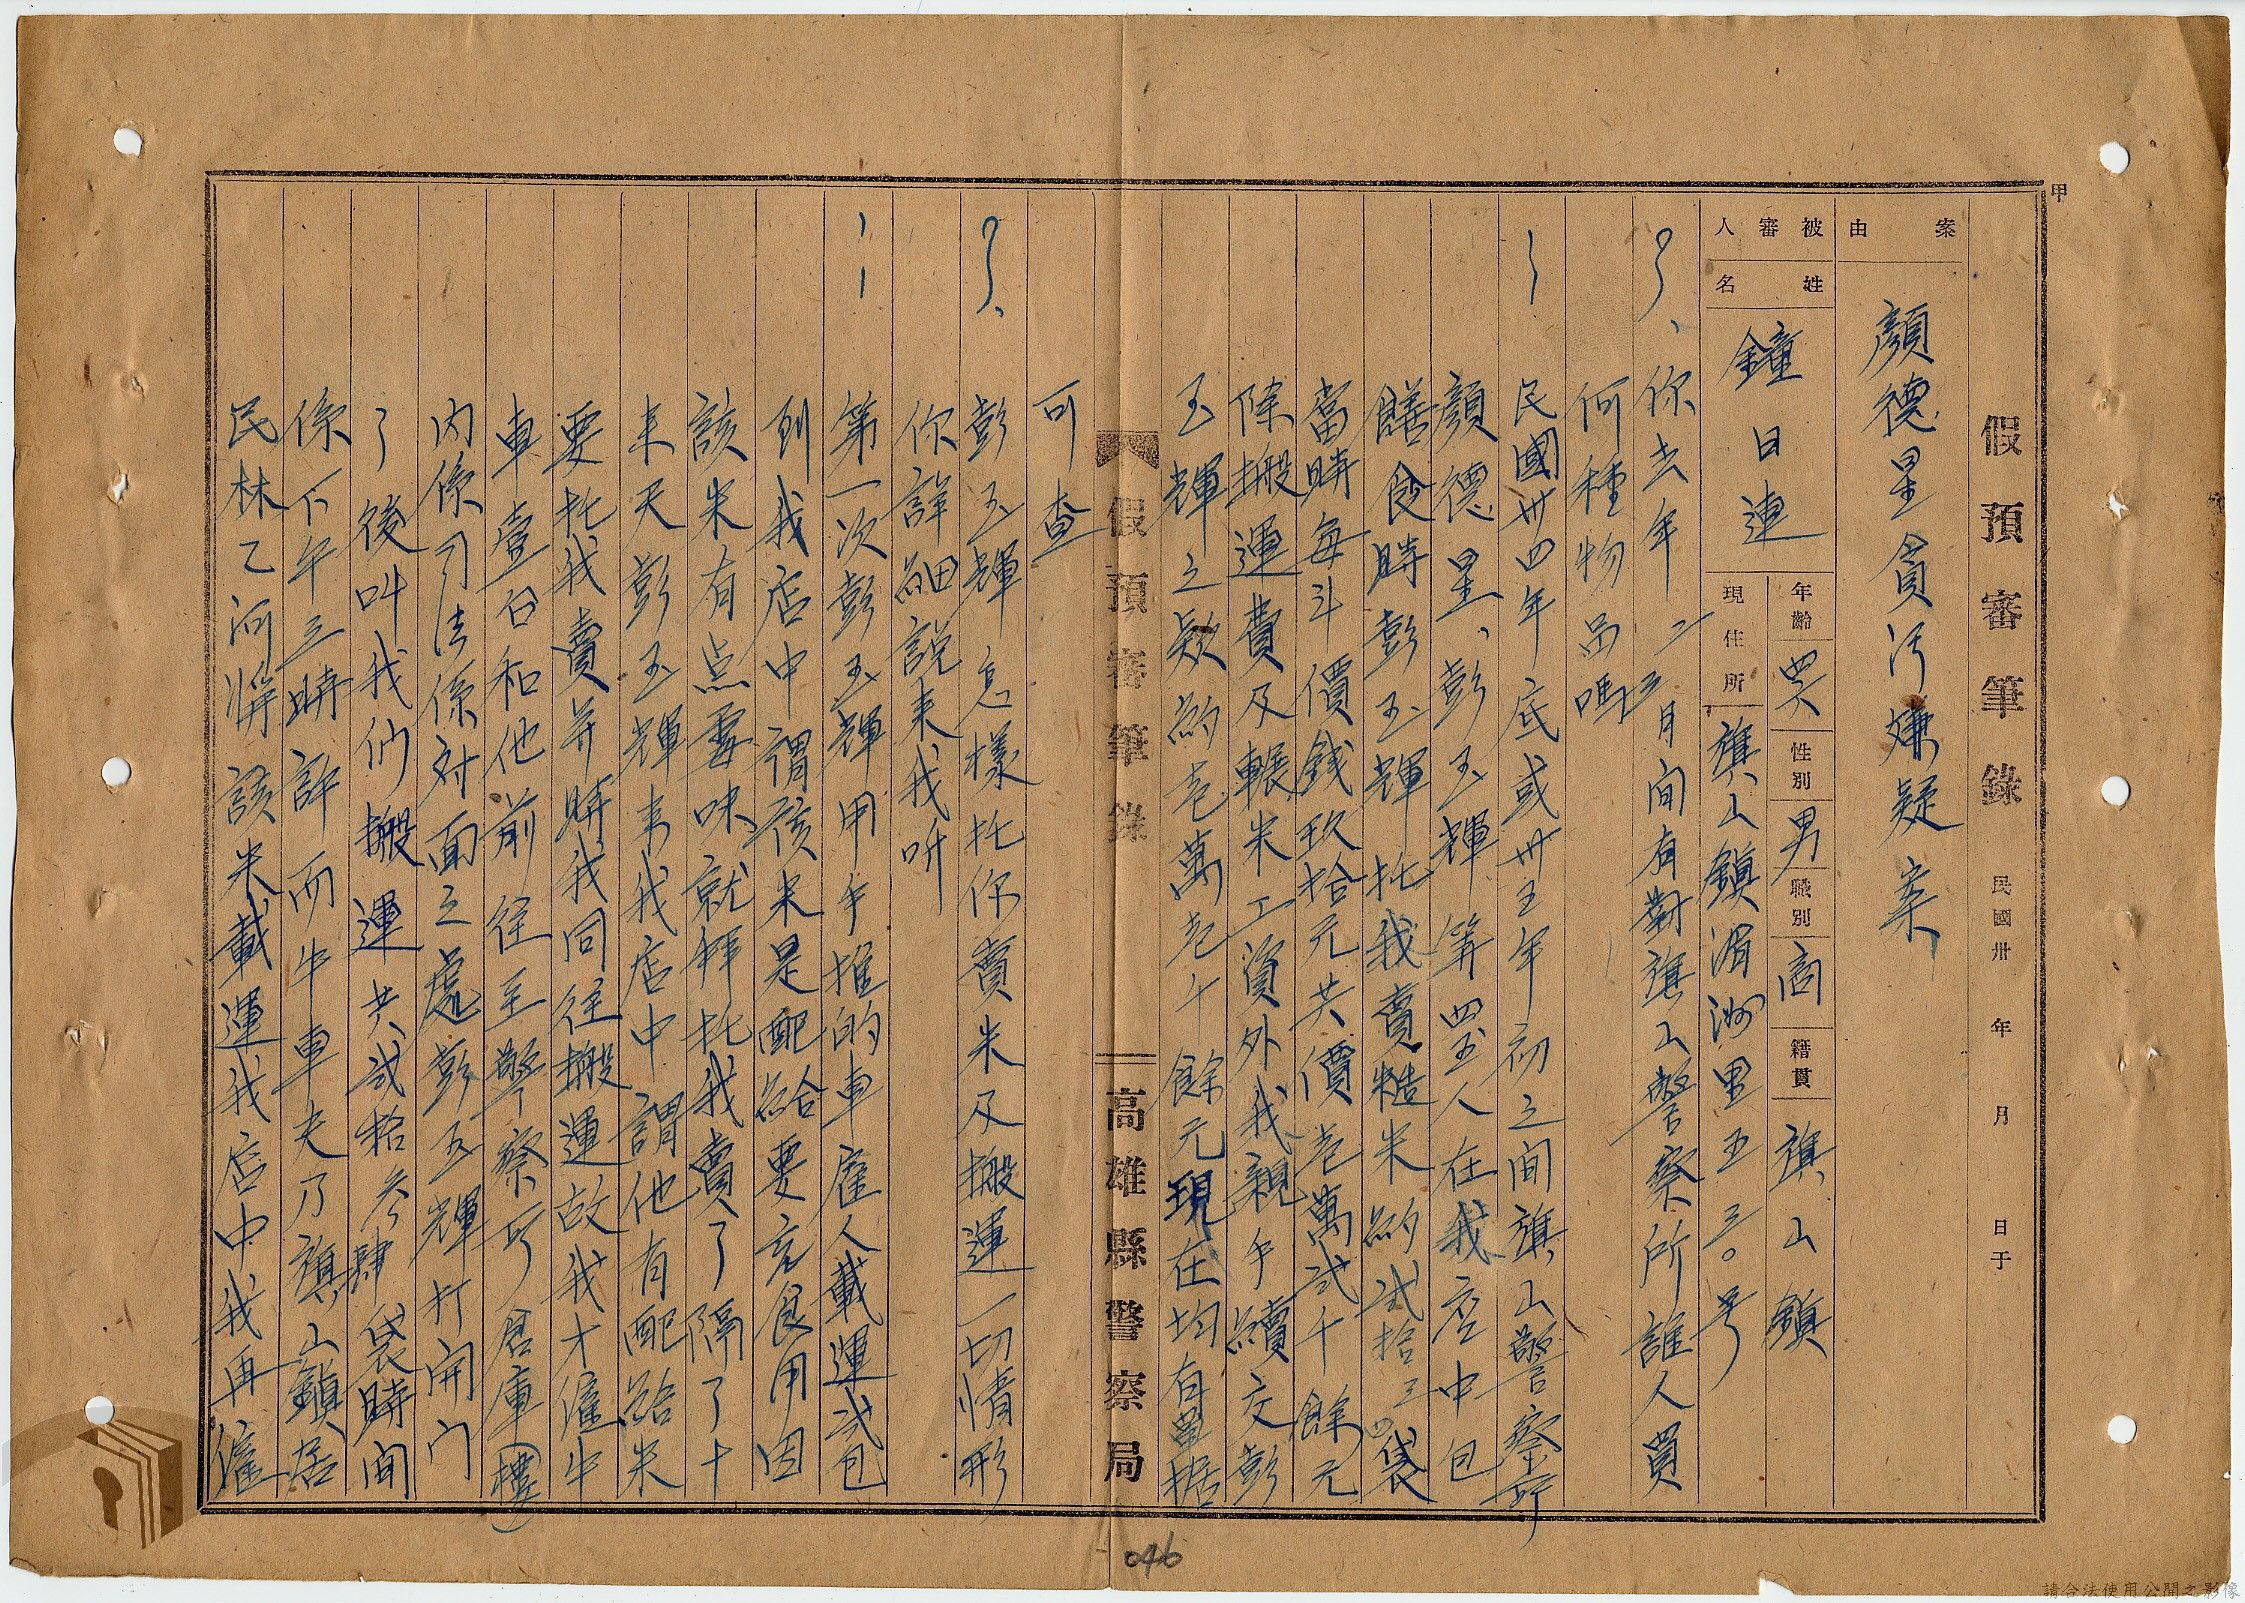 甲
假預審筆錄 民國卅 年 月 日于
案由 顏德星貪污嫌疑案
被審人 姓名 鐘日連 年齡 四六 性別 男 職別 商 籍貫 旗山鎮
現住所 旗山鎮湄洲里五三〇号
你去年二三月间有對旗山警察所誰人買
何種物品嗎
民國卅四年底或卅五年初之间旗山警察所
顏德星、彭玉輝等四五人在我店中包
饍食時彭玉輝托我賣糙米約弍拾三四袋
當時每斗價錢玖拾元共價壱萬弍千餘元
除搬運費及輾米工資外我親手續交彭
玉輝之欵約壱萬壱千餘元現在均有單據
假預審筆錄 高雄縣警察局
可查
彭玉輝怎樣托你賣米及搬運一切情形
你詳細說来我听
第一次彭玉輝用手推的車雇人載運弍包
到我店中謂該米是配給要充食用因
該米有点霉味就拜托我賣了隔了十
来天彭玉輝来我店中謂他有配給米
要托我賣并時我同往搬運故我才僱牛
車壹台和他前往至警察所倉庫(樓
内係司法係对面之處彭玉輝打開门
了後叫我们搬運共弍拾参肆袋時间
係下午三時許而牛車夫乃旗山鎮居
民林乙河將該米載運我店中我再僱
046
請合法使用公開之影像